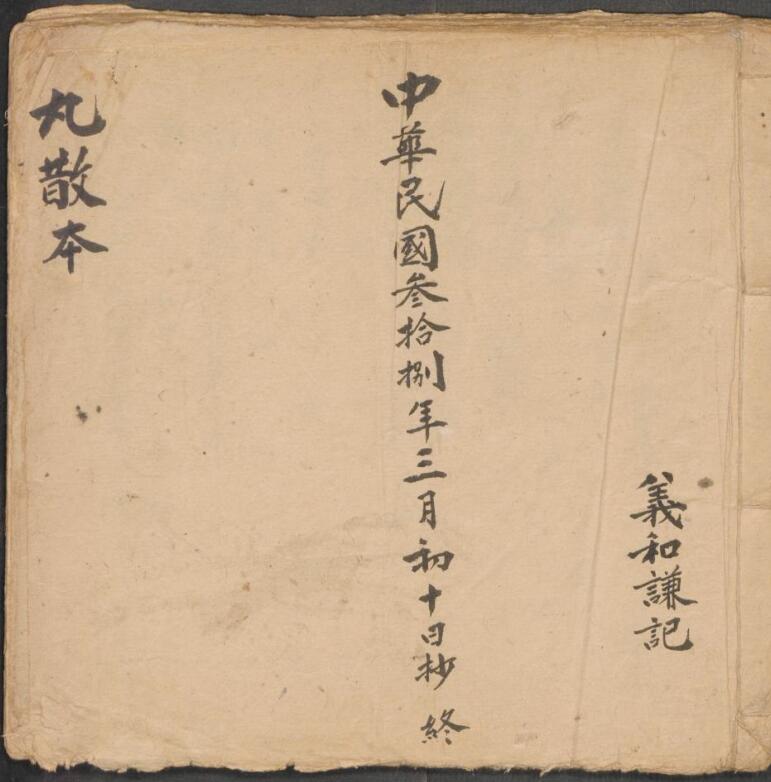 義和謙記
中華民國叁拾捌年三月初十日抄 終
丸散本